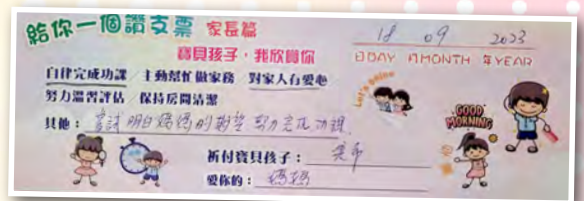 給你一個讚支票 家長篇
18 09 2023
日DAY 月MONTH 年YEAR
寶貝孩子,我欣賞你
自律完成功課/主動幫忙做家務/對家人有愛心
努力溫習評估/保持房間清潔
其他:嘗試明白媽媽的期望 努力完成功課
Let's going
GOOD MORNING
祈付寶貝孩子:
愛你的:媽媽